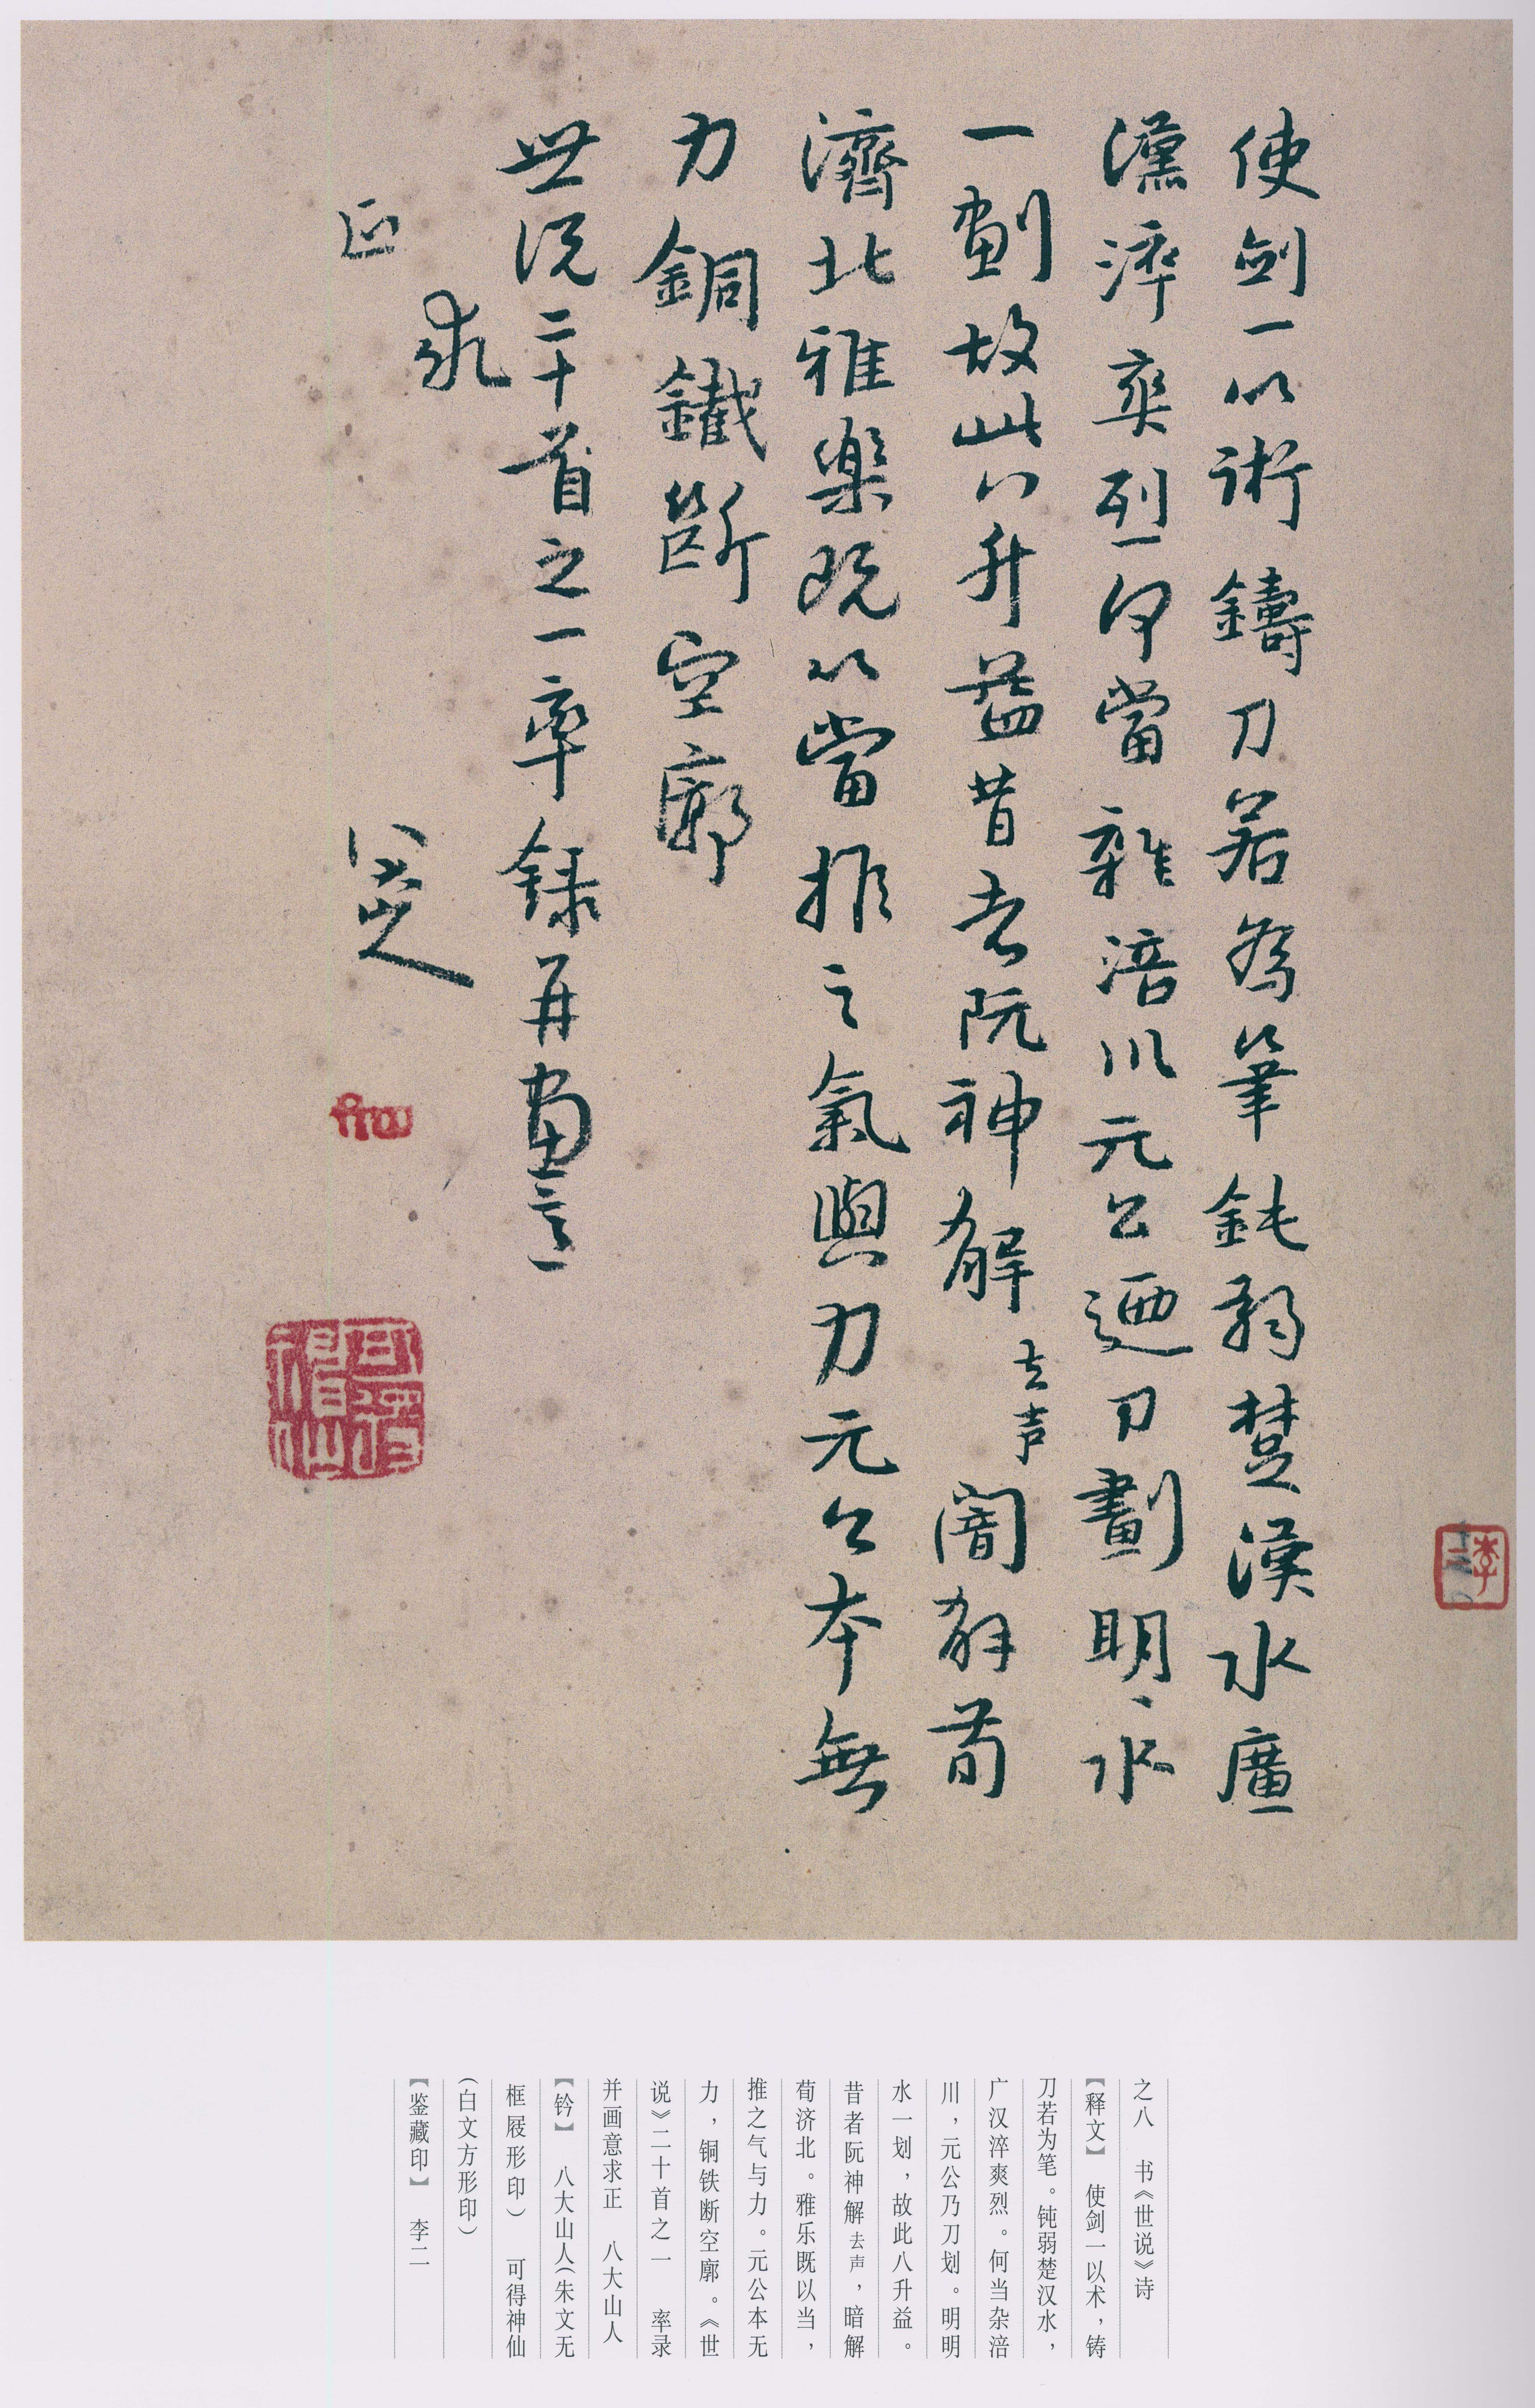 使劍一以術鑄刀若為筆鈍弱楚漢水廣
漢淬爽烈何當雜涪川元公迺刀劃明〻水
一劃故此八升益昔者阮神解去声闇解荀
濟北雅樂既以當推之氣與力元公本無
力銅鐵斷空廓
世説二十首之一率録并畫意
求
正
八大山人
可得神仙
李二
之八 书《世说》诗
【释文】 使剑一以术，铸
刀若为笔。钝弱楚汉水，
广汉淬爽烈。何当杂涪
川，元公乃刀划。明明
水一划，故此八升益。
昔者阮神解去声，暗解
荀济北。雅乐既以当，
推之气与力。元公本无
力，铜铁断空廓。《世
说》二十首之一 率录
并画意求正 八大山人
【钤】 八大山人（朱文无
框屐形印） 可得神仙
（白文方形印）
【鉴藏印】 李二